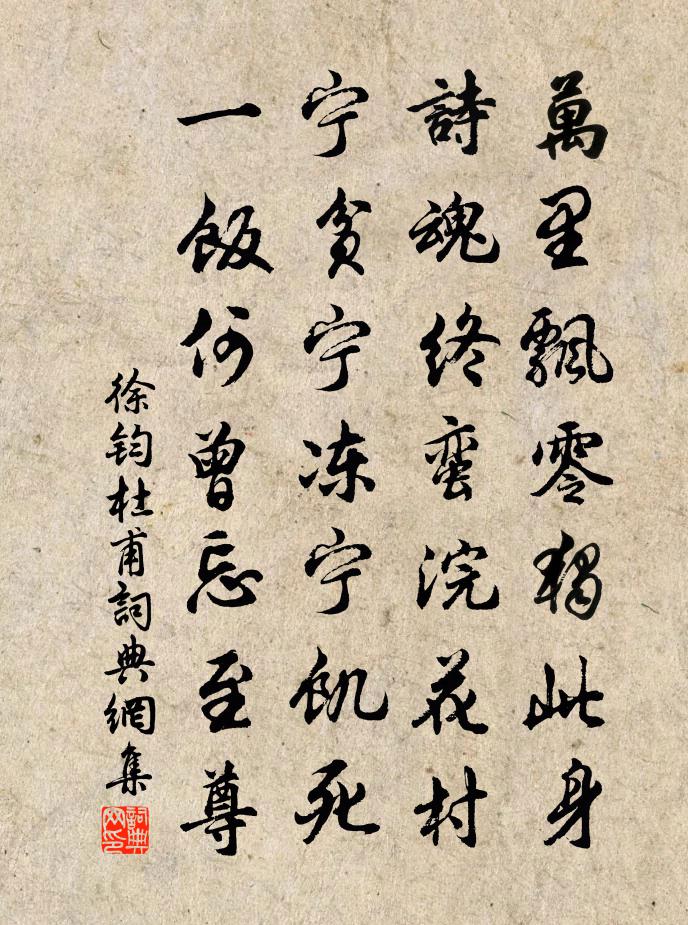 萬里飄零獨此身
詩魂終蛮浣花村
宁貧宁冻宁飢死
一飯何曾忘至尊
徐鈞杜甫詞典網集
詞典網印